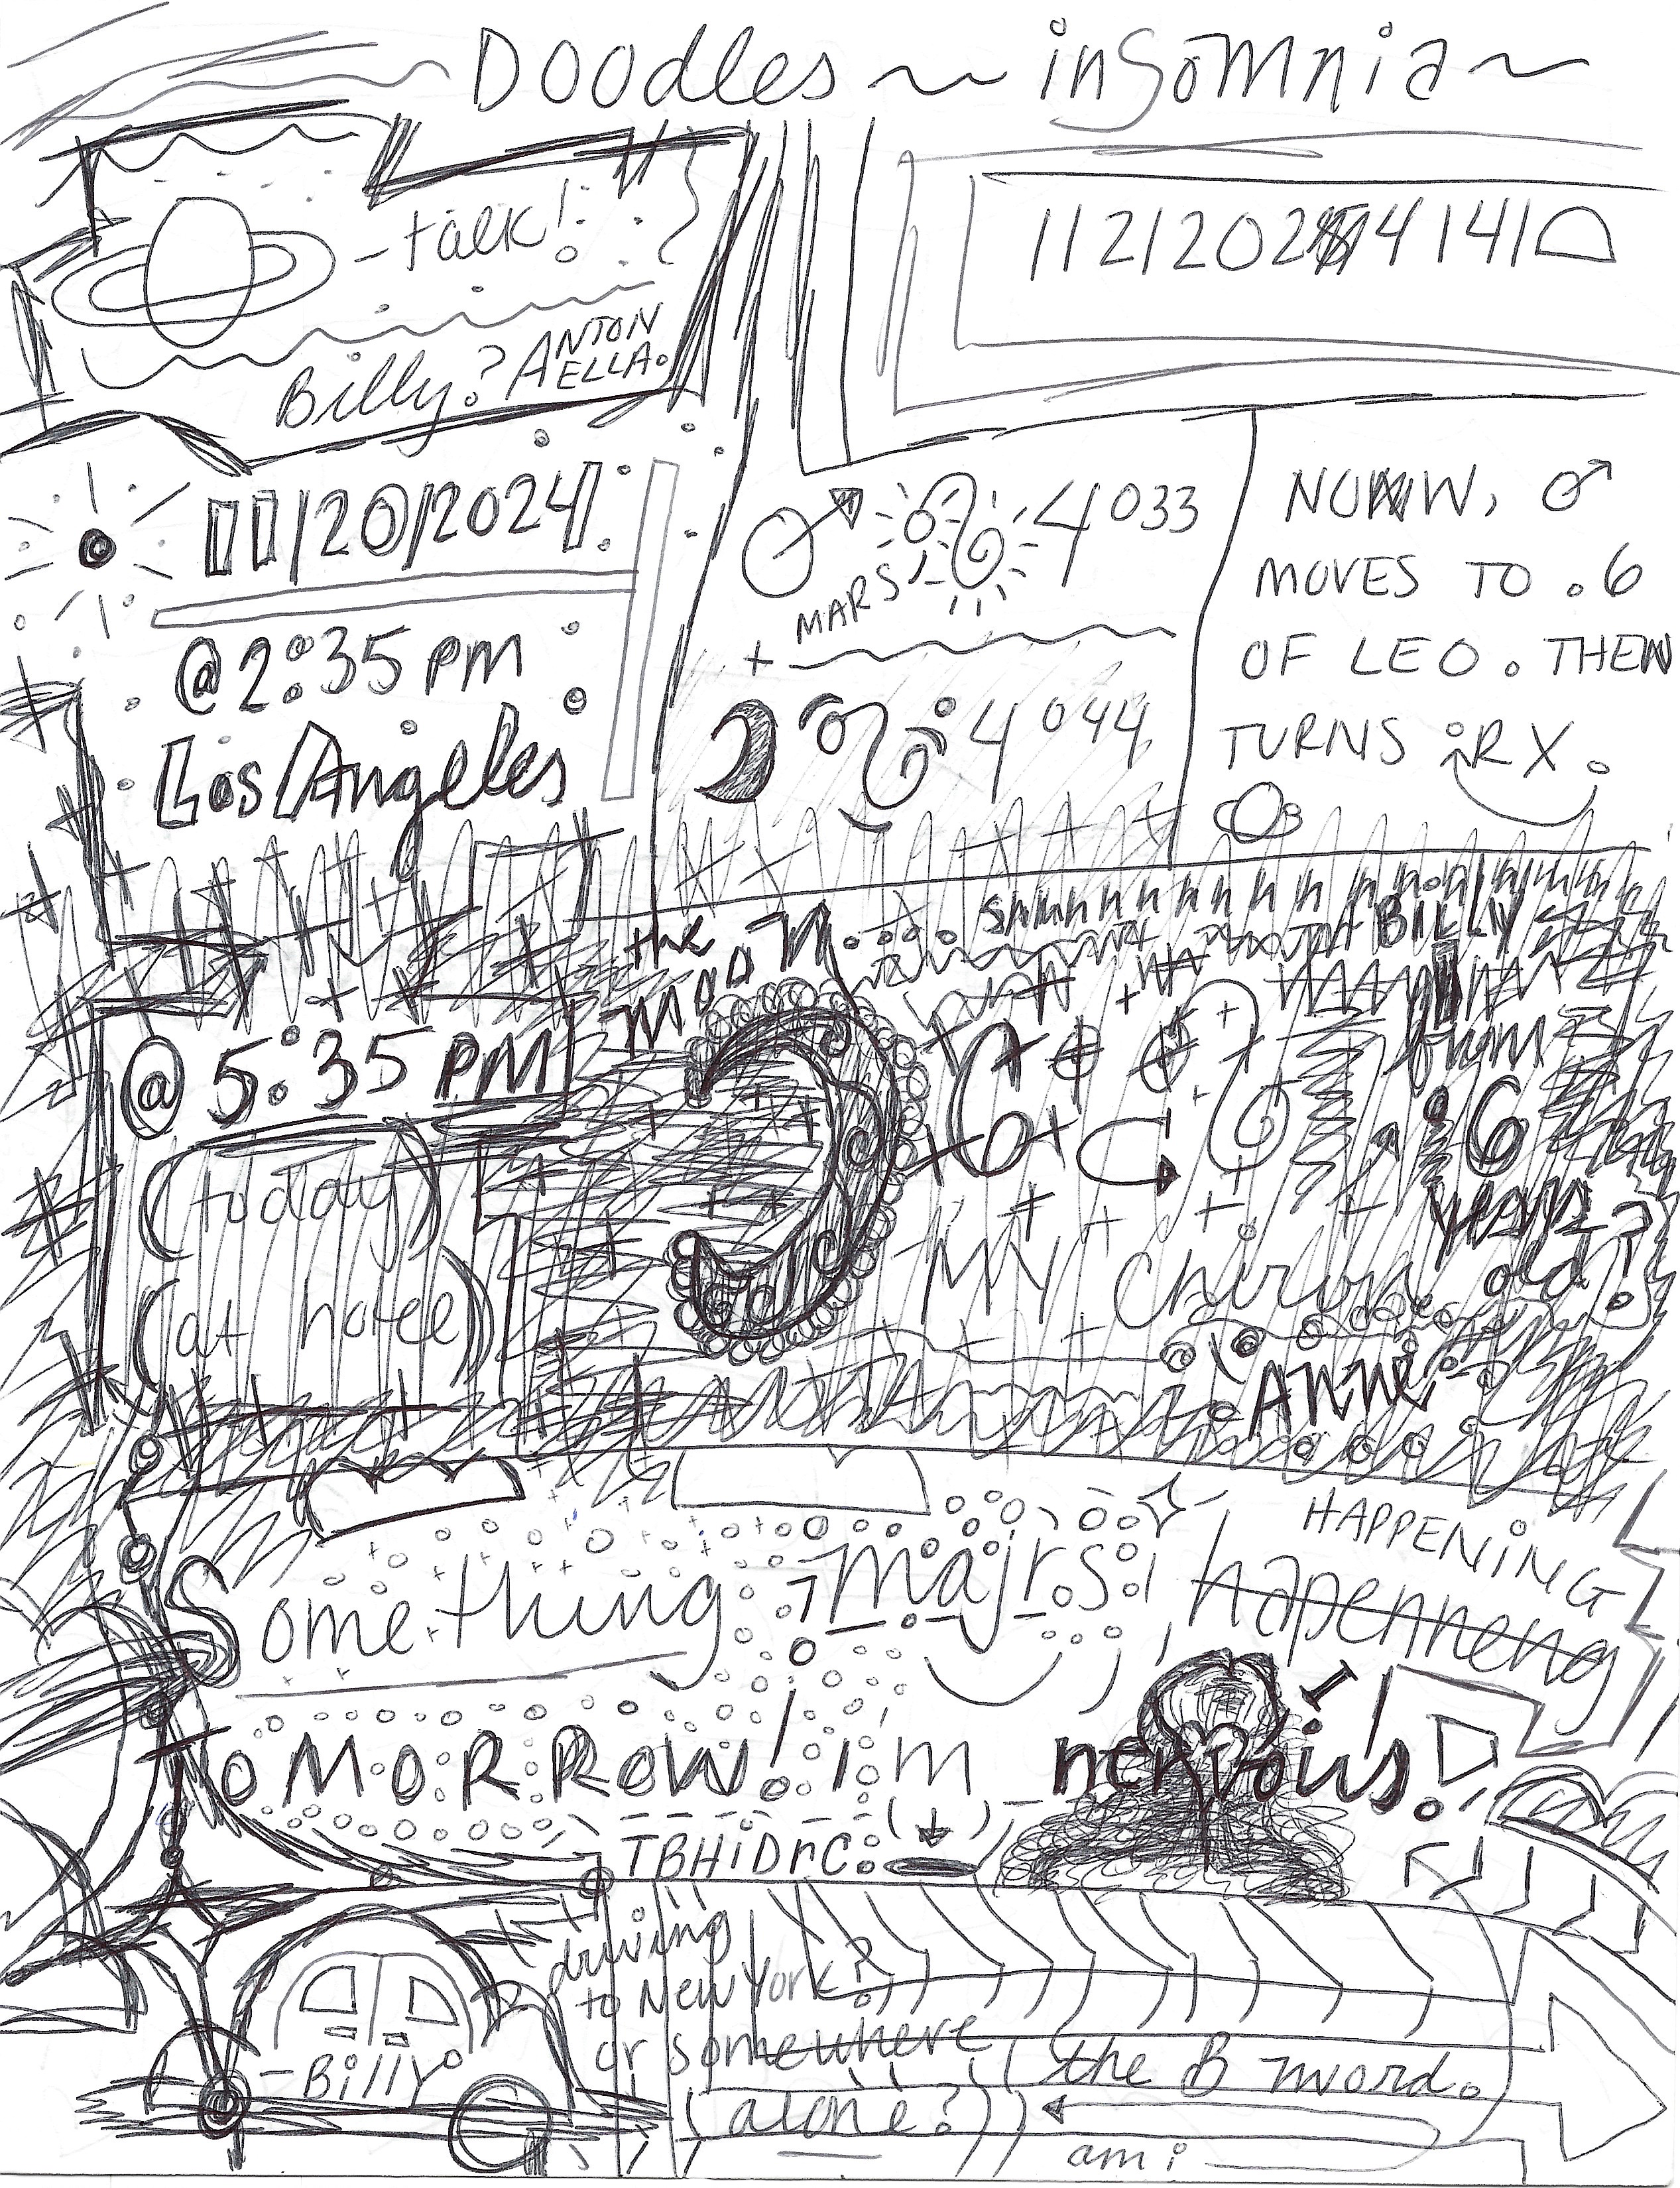 Doodles ~ insomnia ~
-talk!
Billy? ANTONELLA.
11/20/2024
@ 2:35 PM
Los Angeles
MARS
4° 033
+
4° 044
NOW, ♂
MOVES TO .6
OF LEO. THEN
TURNS RX.
the moon
BILLY
@ 5:35 PM
(today)
(at hotel)
from
6
years
old?
MY Chiron
Anne
Something majrs
hapenneng
HAPPENING
TOMORROW! i'm nervous!
TBHiDrC.
driving
to New York?
or somewhere
(alone?)
(the B word.
am i
-Billy